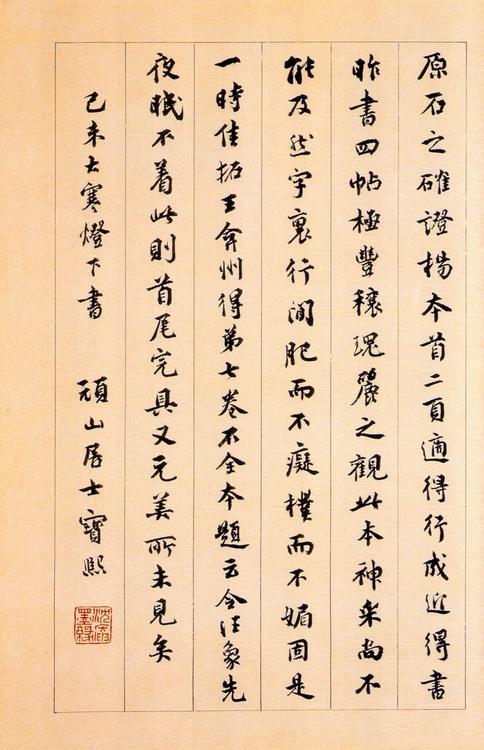 原石之確證楊本首二頁適得行成近得書
昨書四帖極豐穰瑰麗之觀此本神采尚不
能及然字裏行間肥而不癡樸而不媚固是
一時佳拓王弇州得第七卷不全本題云令汪象先
夜眠不着此則首尾完具又元美所未見矣
己未大寒燈下書
頑山居士寶熙
沈盦墨緣